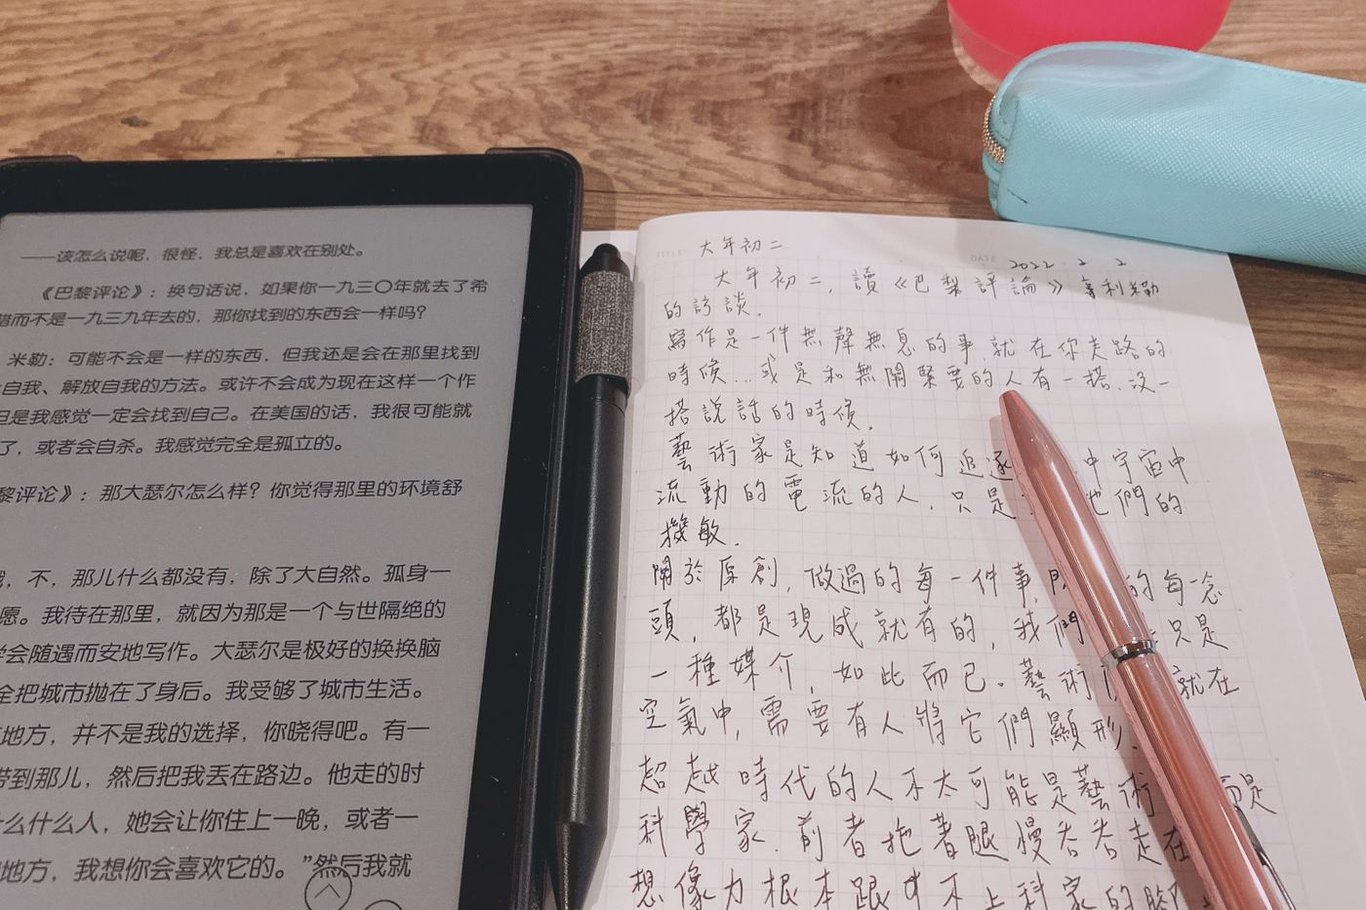 ——该怎么说呢，很怪，我总是喜欢在别处。
《巴黎评论》：换句话说，如果你一九三〇年就去了希
腊而不是一九三九年去的，那你找到的东西会一样吗？
米勒：可能不会是一样的东西，但我还是会在那里找到
自我、解放自我的方法。或许不会成为现在这样一个作
但是我感觉一定会找到自己。在美国的话，我很可能就
了，或者会自杀。我感觉完全是孤立的。
黎评论》：那大瑟尔怎么样？你觉得那里的环境舒
，不，那儿什么都没有，除了大自然。孤身一
愿。我待在那里，就因为那是一个与世隔绝的
学会随遇而安地写作。大瑟尔是极好的换换脑
全把城市抛在了身后。我受够了城市生活。
地方，并不是我的选择，你晓得吧。有一
带到那儿，然后把我丢在路边。他走的时
什么人，她会让你住上一晚，或者一
地方，我想你会喜欢它的。”然后我就
TITLE 大年初二
DATE 2022. 2. 2
大年初二，讀《巴黎評論》亨利米勒
的訪談。
寫作是一件無聲無息的事，就在你走路的
時候…或是和無關緊要的人有一搭、沒一
搭說話的時候。
藝術家是知道如何追逐 中宇宙中
流動的電流的人，只是 他們的
機敏。
關於原創，做過的每一件事， 的每一念
頭，都是現成就有的，我們 只是
一種媒介，如此而已。藝術 就在
空氣中，需要有人將它們顯形。
超越時代的人不太可能是藝術 而是
科學家。前者拖著腿慢吞吞走在
想像力根本跟不上科家的腳